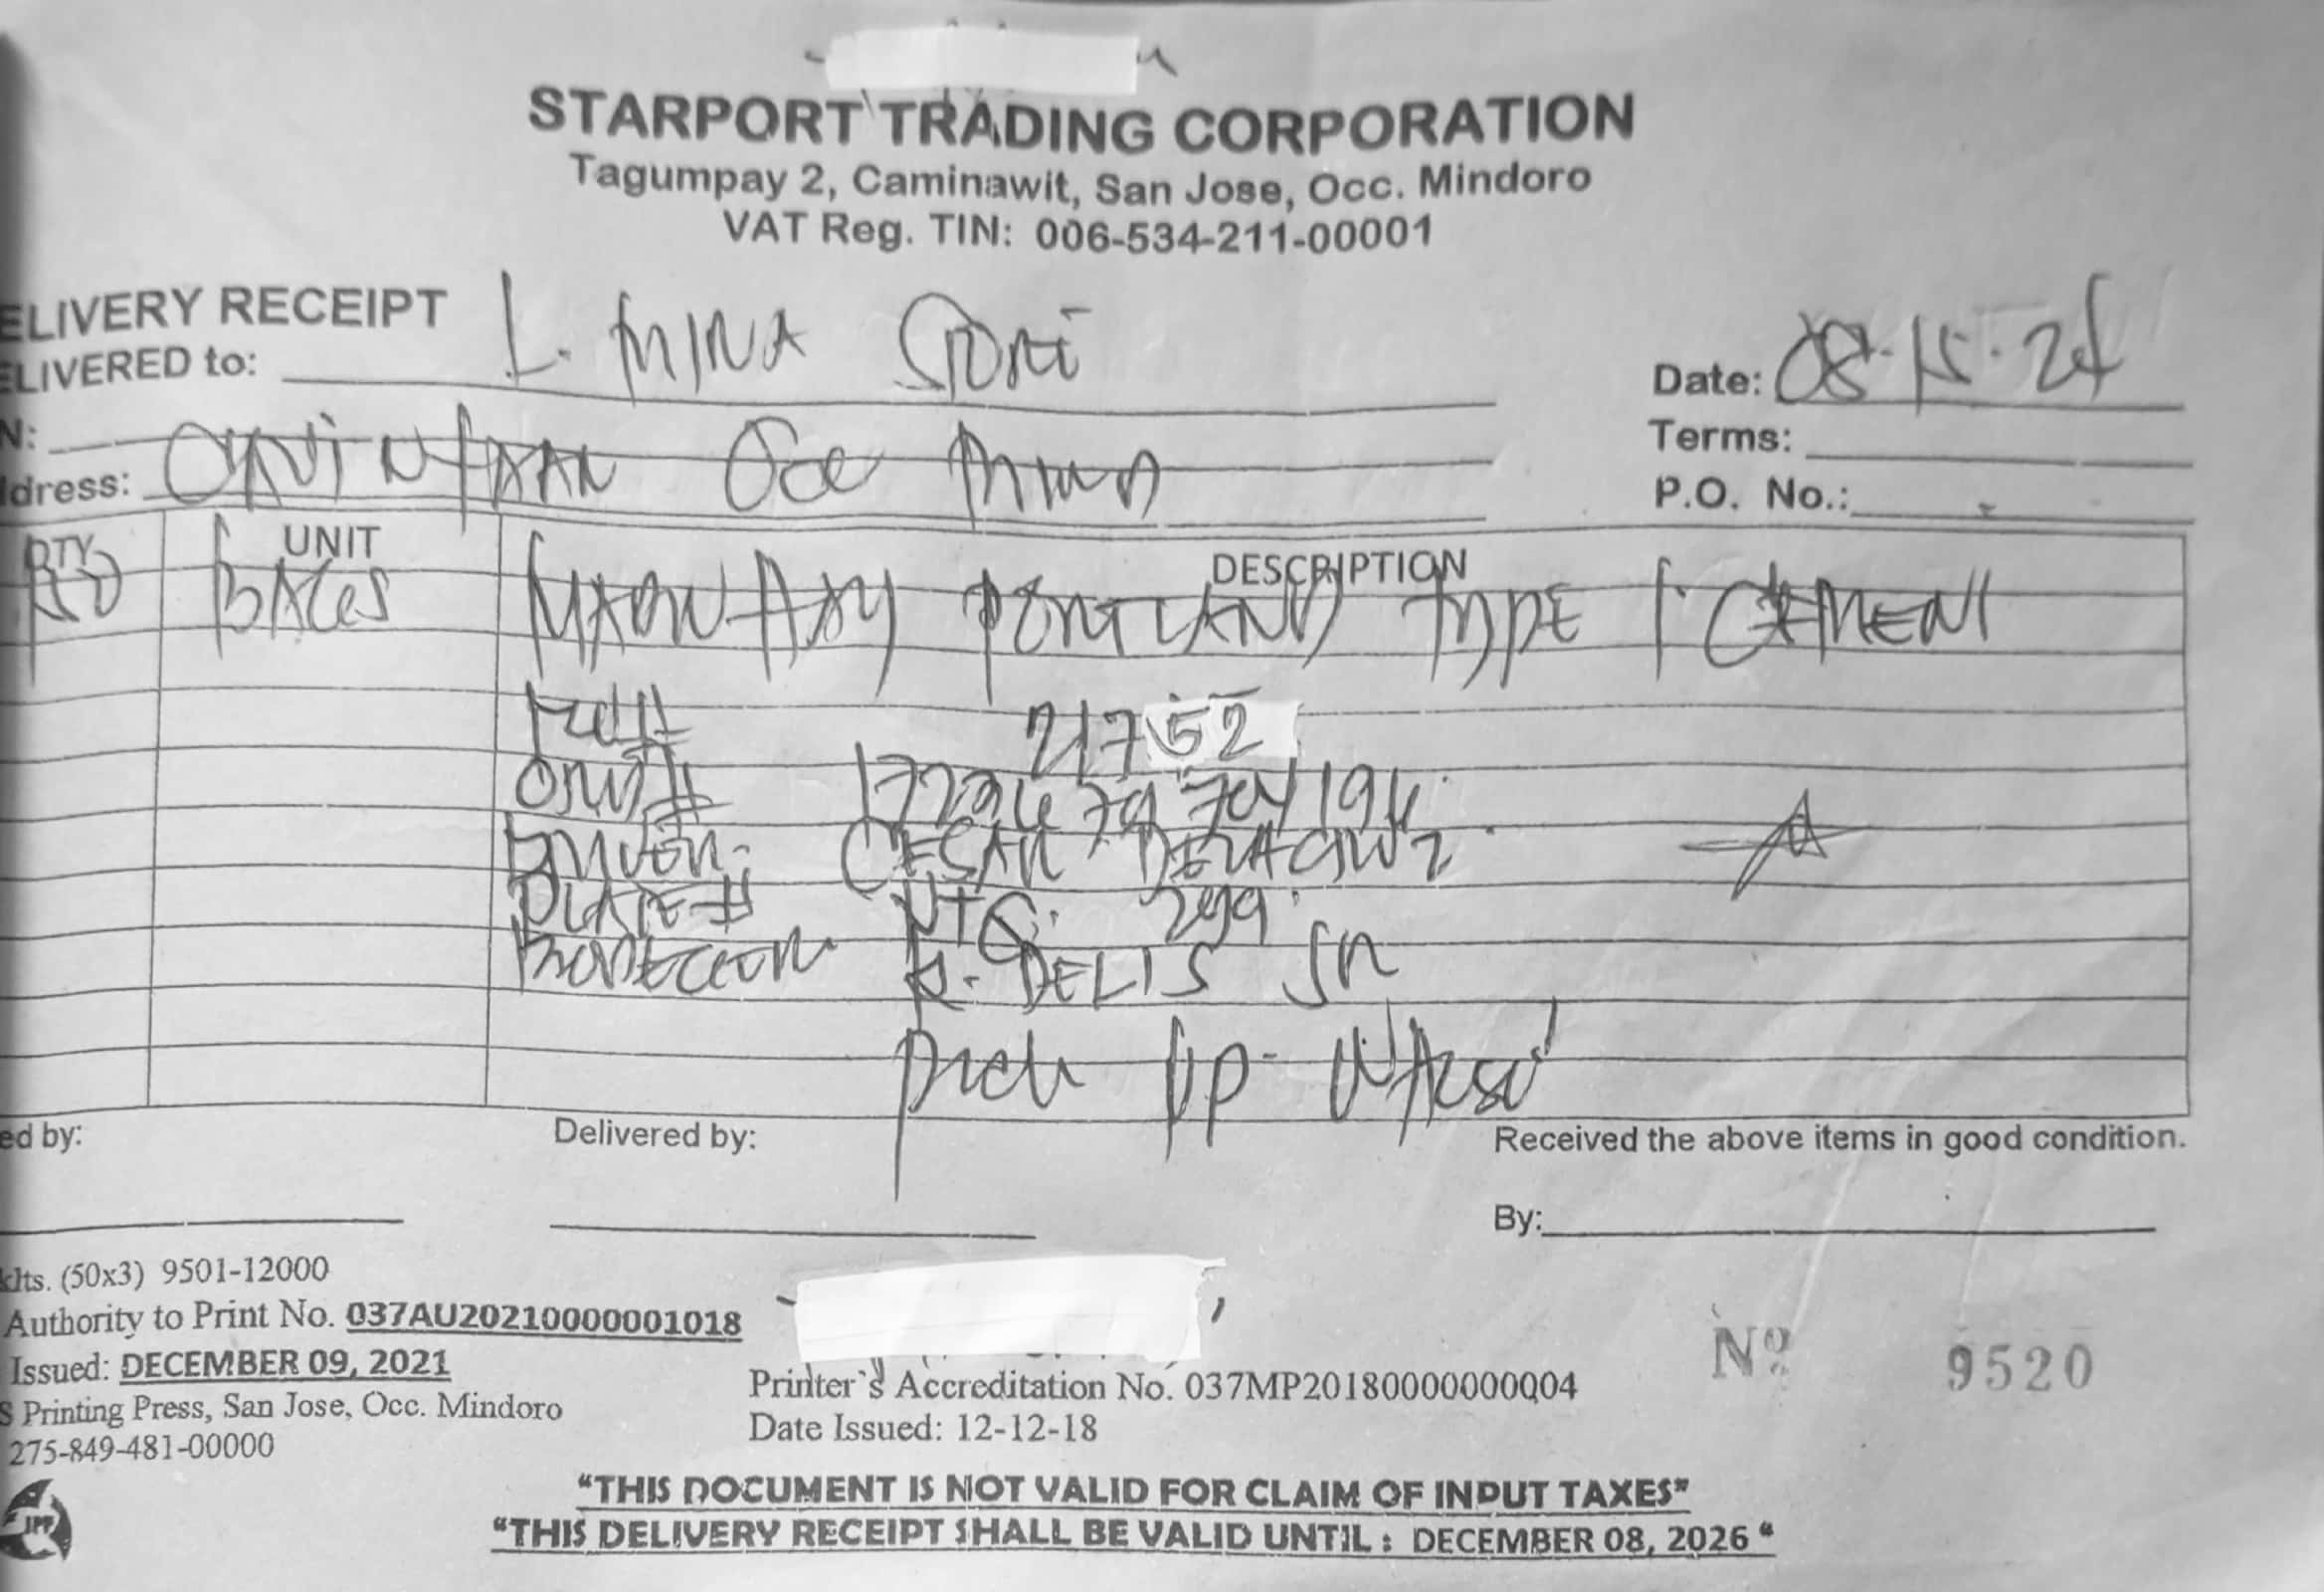 STARPORT TRADING CORPORATION
Tagumpay 2, Caminawit, San Jose, Occ. Mindoro
VAT Reg. TIN: 006-534-211-00001
ELIVERY RECEIPT
ELIVERED to: L. MINA STORE
Date: 08-15-24
N:
Terms:
dress: Occ
P.O. No.:
QTY UNIT DESCRIPTION
BAGS PORTLAND TYPE 1 CEMENT
21752
CESAR
PLATE #
R. DELIS JR
Pick Up
ed by:
Delivered by:
Received the above items in good condition.
By:
klts. (50x3) 9501-12000
Authority to Print No. 037AU20210000001018
Issued: DECEMBER 09, 2021
S Printing Press, San Jose, Occ. Mindoro
275-849-481-00000
Printer's Accreditation No. 037MP20180000000004
Date Issued: 12-12-18
Nº 9520
JPP
"THIS DOCUMENT IS NOT VALID FOR CLAIM OF INPUT TAXES"
"THIS DELIVERY RECEIPT SHALL BE VALID UNTIL : DECEMBER 08, 2026 "